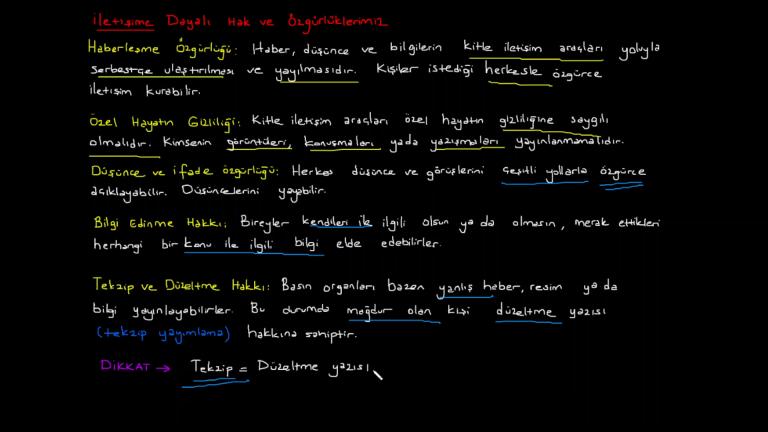 iletişime Dayalı Hak ve Özgürlüklerimiz
Haberleşme Özgürlüğü: Haber, düşünce ve bilgilerin kitle iletişim araçları yoluyla
serbestçe ulaştırılması ve yayılmasıdır. Kişiler istediği herkesle özgürce
iletişim kurabilir.
Özel Hayatın Gizliliği: Kitle iletişim araçları özel hayatın gizliliğine saygılı
olmalıdır. Kimsenin görüntüleri, konuşmaları yada yazışmaları yayınlanmamalıdır.
Düşünce ve ifade özgürlüğü: Herkes düşünce ve görüşlerini çeşitli yollarla özgürce
açıklayabilir. Düşüncelerini yayabilir.
Bilgi Edinme Hakkı: Bireyler kendileri ile ilgili olsun ya da olmasın, merak ettikleri
herhangi bir konu ile ilgili bilgi elde edebilirler.
Tekzip ve Düzeltme Hakkı: Basın organları bazen yanlış haber, resim ya da
bilgi yayınlayabilirler. Bu durumda mağdur olan kişi düzeltme yazısı
(tekzip yayımlama) hakkına sahiptir.
DİKKAT → Tekzip = Düzeltme yazısı